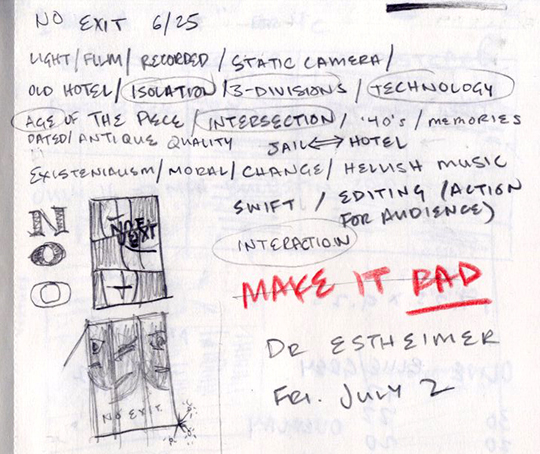 NO EXIT 6/25
LIGHT/FILM/RECORDED/STATIC CAMERA/
OLD HOTEL/ISOLATION/3-DIVISIONS/TECHNOLOGY
AGE OF THE PIECE/INTERSECTION/'40's/MEMORIES
DATED/ANTIQUE QUALITY JAIL⟷HOTEL
EXISTENIALISM/MORAL/CHANGE/HELLISH MUSIC
SWIFT/EDITING (ACTION
FOR AUDIENCE)
INTERACTION
N
O
O
NO EXIT
MAKE IT BAD
DR ESTHEIMER
Fri. July 2
NO EXIT